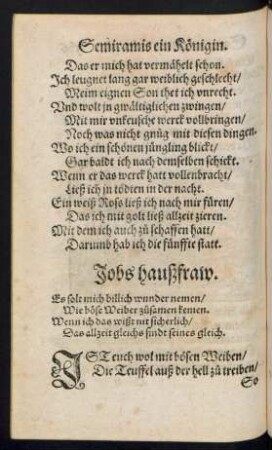 Semiramis ein Königin.
Das er mich hat vermähelt schon.
Ich leugnet lang gar weiblich geschlecht/
Meim eignen Son thet ich vnrecht.
Vnd wolt jn gwältiglichen zwingen/
Mit mir vnkeusche werck vollbringen/
Noch was nicht gnüg mit diesen dingen.
Wo ich ein schönen jüngling blickt/
Gar baldt ich nach demselben schickt.
Wenn er das werck hatt vollenbracht/
Ließ ich jn tödten in der nacht.
Ein weiß Roso ließ ich nach mir füren/
Das ich mit golt ließ allzeit zieren.
Mit dem ich auch zů schaffen hatt/
Darumb hab ich die fünffte statt.
Jobs haußfraw.
Es solt mich billich wunder nemen/
Wie böse Weiber züsamen kemen.
Wenn ich das wißt nit sicherlich/
Das allzeit gleichs findt seines gleich.
IST euch wol mit bösen Weiben/
Die Teuffel auß der hell zů treiben/
So